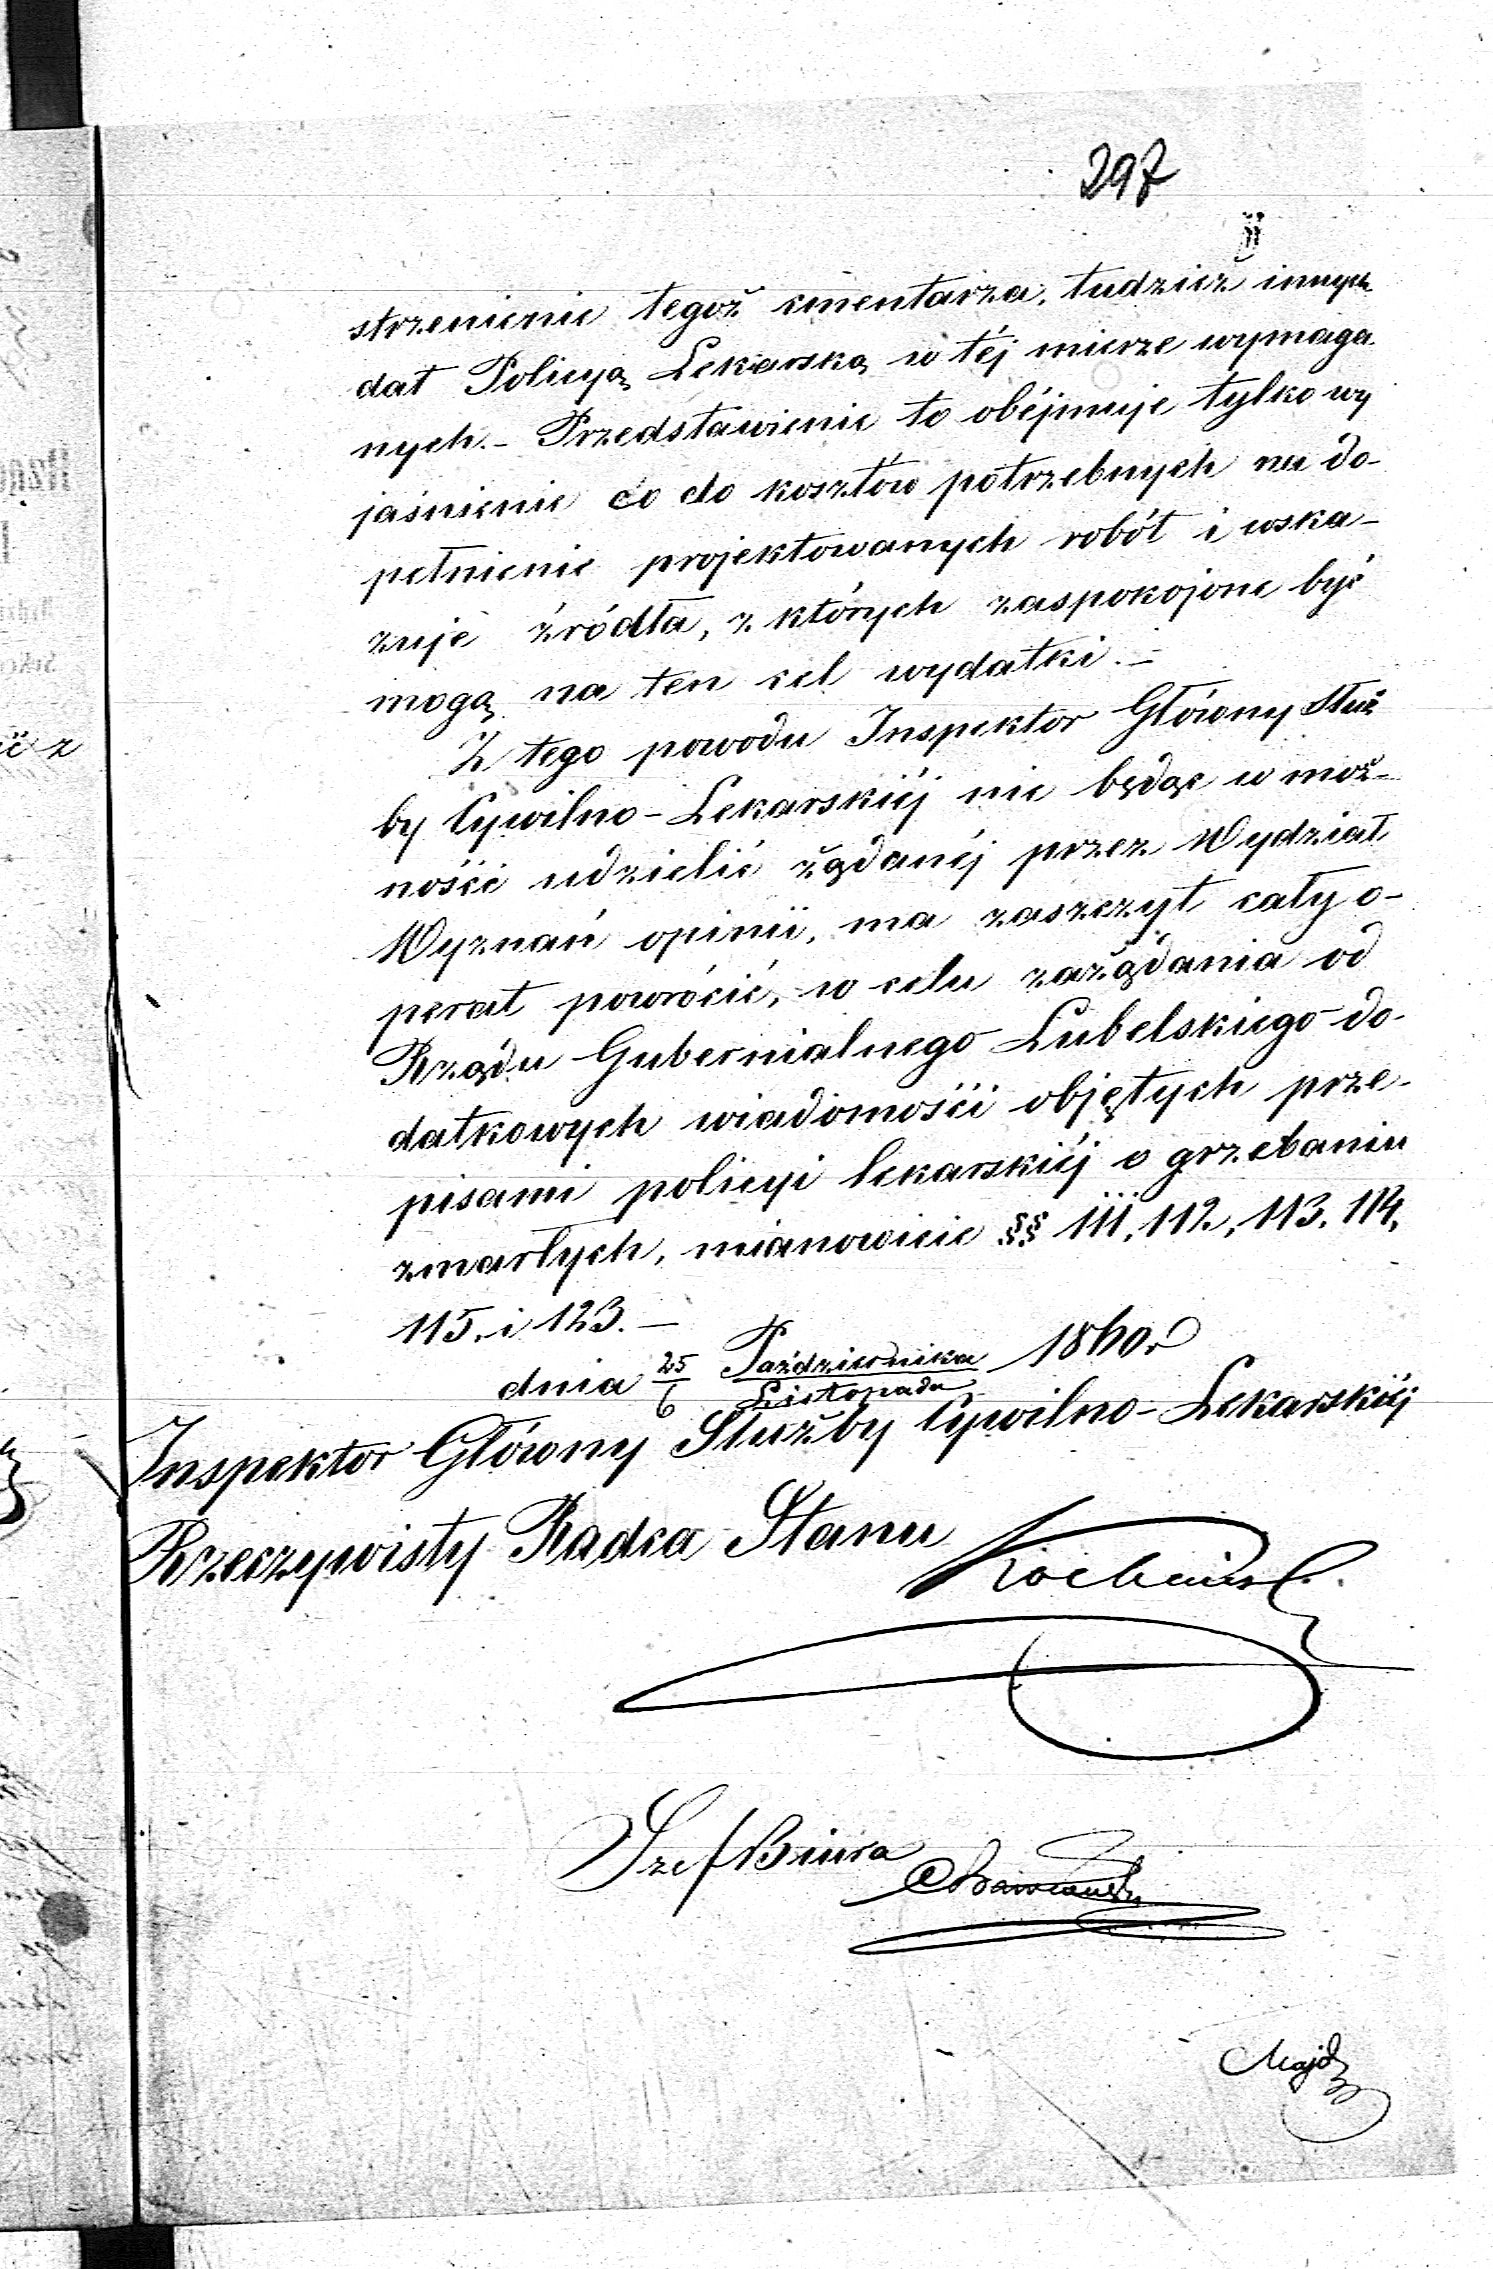 297
strzenienie tegoż cmentarza, tudzież innych
dat Policyą Lekarską w téj mierze wymaga-
nych. – Przedstawienie to obéjmuje tylko wy
jaśnienie co do kosztów potrzebnych na do-
pełnienie projektowanych robót i wska-
zuje źródła, z których zaspokojone być
mogą na ten cel wydatki. –
Z tego powodu Inspektor Główny Służ
by Cywilno-Lekarskiéj nie będąc w moż-
ności udzielić żądanéj przez Wydział
Wyznań opinii, ma zaszczyt cały o-
perat powrócić, w celu zażądania od
Rządu Gubernialnego Lubelskiego do-
datkowych wiadomości objętych prze-
pisami policyi lekarskiéj o grzebaniu
zmarłych, mianowicie §§ 111, 112, 113, 114,
115, i 123. –
dnia 25/6 Października/Listopada 1860 r
Inspektor Główny Służby Cywilno-Lekarskiéj
Rzeczywisty Radca Stanu
Szef Biura
Majd